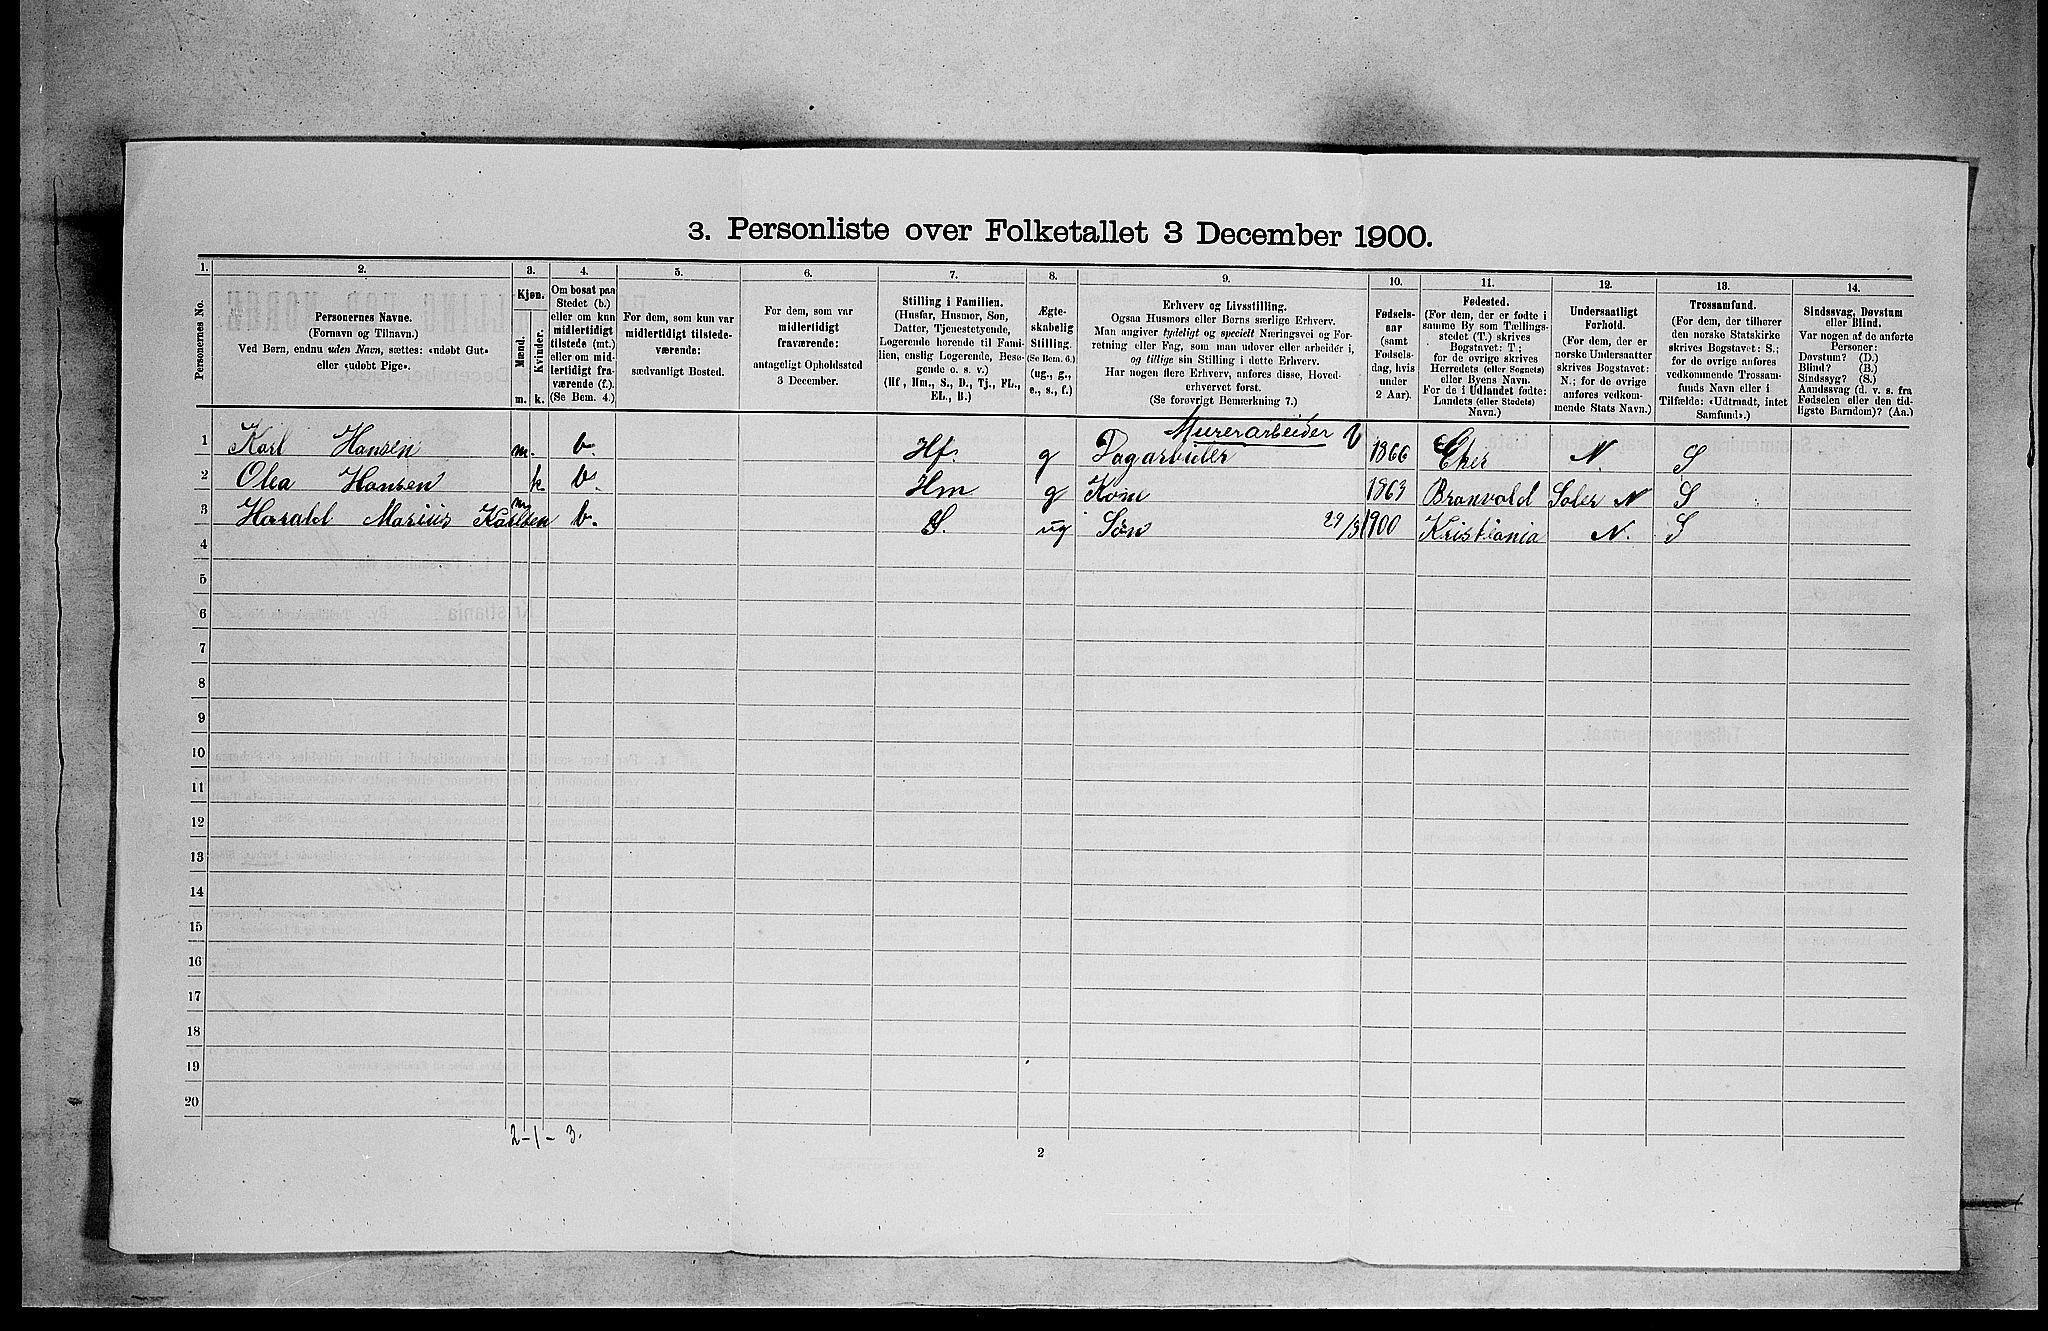 3. Personliste over Folketallet 3 December 1900.
1. 2. 3. 4. 5. 6. 7. 8. 9. 10. 11. 12. 13. 14.
Personernes No.
Personernes Navne.
(Fornavn og Tilnavn.)
Ved Børn, endnu uden Navn, sættes: «udøbt Gut»
eller «udøbt Pige».
Kjøn.
Mænd.
Kvinder.
m. k.
Om bosat paa
Stedet (b.)
eller om kun
midlertidigt
tilstede (mt.)
eller om mid-
lertidigt fra-
værende (f.).
(Se Bem. 4.)
For dem, som kun var
midlertidigt tilstede-
værende:
sædvanligt Bosted.
For dem, som var
midlertidigt
fraværende:
antageligt Opholdssted
3 December.
Stilling i Familien.
(Husfar, Husmor, Søn,
Datter, Tjenestetyende,
Logerende hørende til Fami-
lien, enslig Logerende, Besø-
gende o. s. v.)
(Hf., Hm., S., D., Tj., FL.,
EL., B.)
Ægte-
skabelig
Stilling.
(Se Bem. 6.)
(ug., g.,
e., s., f.)
Erhverv og Livsstilling.
Ogsaa Husmors eller Børns særlige Erhverv.
Man angiver tydeligt og specielt Næringsvei og For-
retning eller Fag, som man udøver eller arbeider i,
og tillige sin Stilling i dette Erhverv.
Har nogen flere Erhverv, anføres disse, Hoved-
erhvervet først.
(Se forøvrigt Bemerkning 7.)
Fødsels-
aar
(samt
Fødsels-
dag, hvis
under
2 Aar).
Fødested.
(For dem, der er fødte i
samme By som Tællings-
stedet (T.) skrives
Bogstavet: T;
for de øvrige skrives
Herredets (eller Sognets)
eller Byens Navn.
For de i Udlandet fødte:
Landets (eller Stedets)
Navn.)
Undersaatligt
Forhold.
(For dem, der er
norske Undersaatter
skrives Bogstavet:
N.; for de øvrige
anføres vedkom-
mende Stats Navn.)
Trossamfund.
(For dem, der tilhører
den norske Statskirke
skrives Bogstavet: S.;
for de øvrige anføres
vedkommende Trossam-
funds Navn eller i
Tilfælde: «Udtraadt, intet
Samfund».)
Sindssvag, Døvstum
eller Blind.
Var nogen af de anførte
Personer:
Døvstum? (D.)
Blind? (B.)
Sindssyg? (S.)
Aandssvag (d. v. s. fra
Fødselen eller den tid-
ligste Barndom)? (Aa.)
Murerarbeider
1 Karl Hansen m. b. Hf. g Dagarbeider 1866 Eker N. S
2 Olea Hansen k. b. Hm g Kone 1863 Branvold Soler N S
3 Harald Marius Karlsen m b. S. ug Søn 29/3 1900 Kristiania N. S
4
5
6
7
8
9
10
11
12
13
14
15
16
17
18
19
20
2-1-3.
2